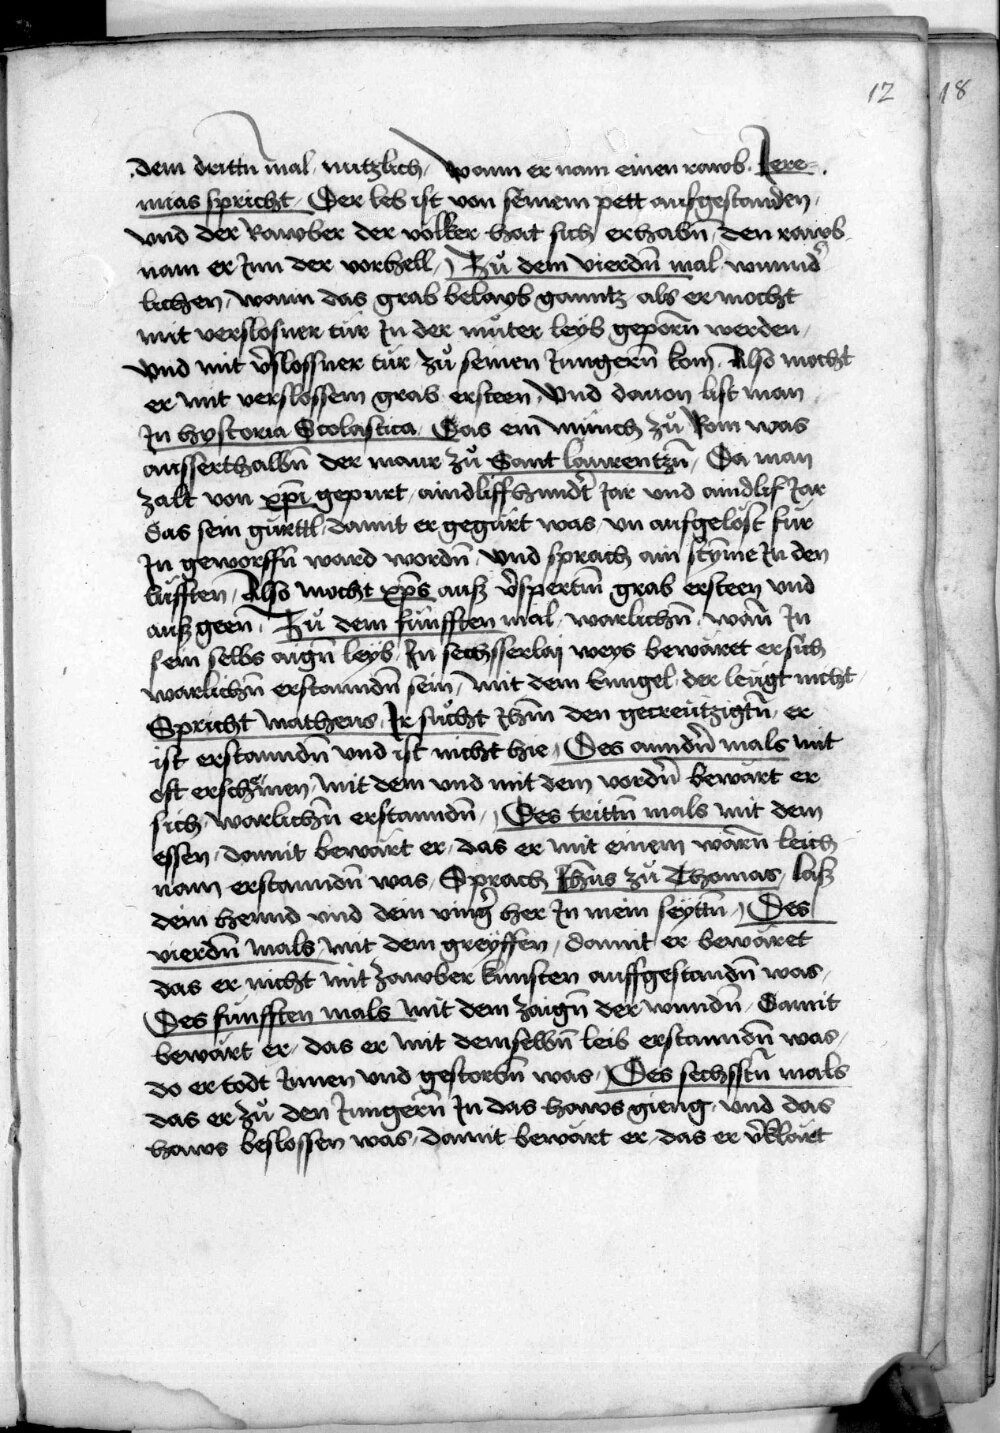 12 18
dem drittn̄ mal nutzlich / wann er nam einen rawb . Jere=
mias spricht / Der leb ist von seinem pett aufgestanden /
vnd der Rawber der völker hat sich erhabn̄ den rawb
nam er Jnn der vorhell / Zů dem vierdn̄ mal wunnd̄
lichen / wann das grab belayb ganntz als er mocht
mit verslosner tür Jn der můter leyb geporn̄ werden /
vnd mit v̄slossner tür zů seinen Jungern̄ kom̄ . Also mocht
er mit verslossem grab ersteen / Vnd dauon list man
Jn hystoria Scolastica Das ein münch zů Rom was
ausserthalbn̄ der maur zů Sant laurentzn̄ / Da man
zalt von xp̄i gepurt / aindliffhundt̄ Jar vnd aindlif Jar
das sein gürttl / damit er gegürt was / vn aufgelöst für
Jn geworffn̄ ward wordn̄ / vnd sprach ain stym̄e Jn den
lüfften / Also mocht xp̄s ausz v̄spertm̄ grab ersteen vnd
ausz geen / Zů dem fünfften mal / warlichn̄ / wan̄ Jn
sein selbs aign̄ leyb / Jn sechsserlaj weys bewäret er sich
warlichn̄ erstanndn̄ sein / mit dem Enngel / der leugt nicht /
Spricht matheus / Jr sůcht Jhm̄ den gecreützigtn̄ / er
ist erstanndn̄ vnd ist nicht hie / Des anndn̄ mals mit
oft erscheinen / mit dem vnd mit dem vordn̄ bewärt er
sich / warlichn̄ erstanndn̄ / Des trittn̄ mals mit dem
essen / domit bewärt er / das er mit einem warn̄ leich
nam erstanndn̄ was / Sprach Jhn̄s zů Thomas / lasz
dein hennd vnd dein vinḡ her Jn mein seyttn̄ / Des
vierdn̄ mals / mit dem greyffen / damit er bewäret
das er nicht mit zawber kunsten auffgestandn̄ was /
Des fünfften mals mit dem zaign̄ der wundn̄ / Damit
bewärt er / das er mit demselbn̄ leib erstanndn̄ was /
do er todt Jnnen vnd gestorbn̄ was / Des sechsstn̄ mals
das er zů den Jungern̄ Jn das haws gieng / vnd das
haws beslossen was / damit bewärt er / das er v̄klärt